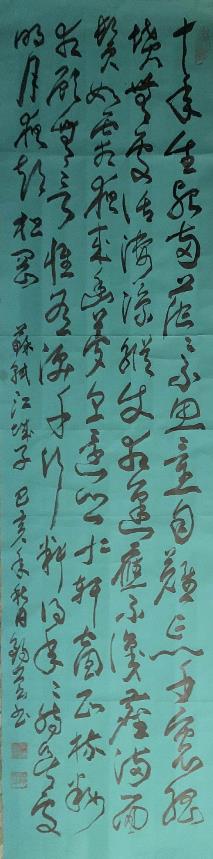 十年生死兩茫茫不思量自難忘千里孤
墳無處話淒涼縱使相逢應不識塵滿面
鬢如霜夜來幽夢忽還鄉小軒窗正梳妝
相顧無言惟有淚千行料得年年腸斷處
明月夜短松岡 蘇軾江城子 己亥年秋月 書